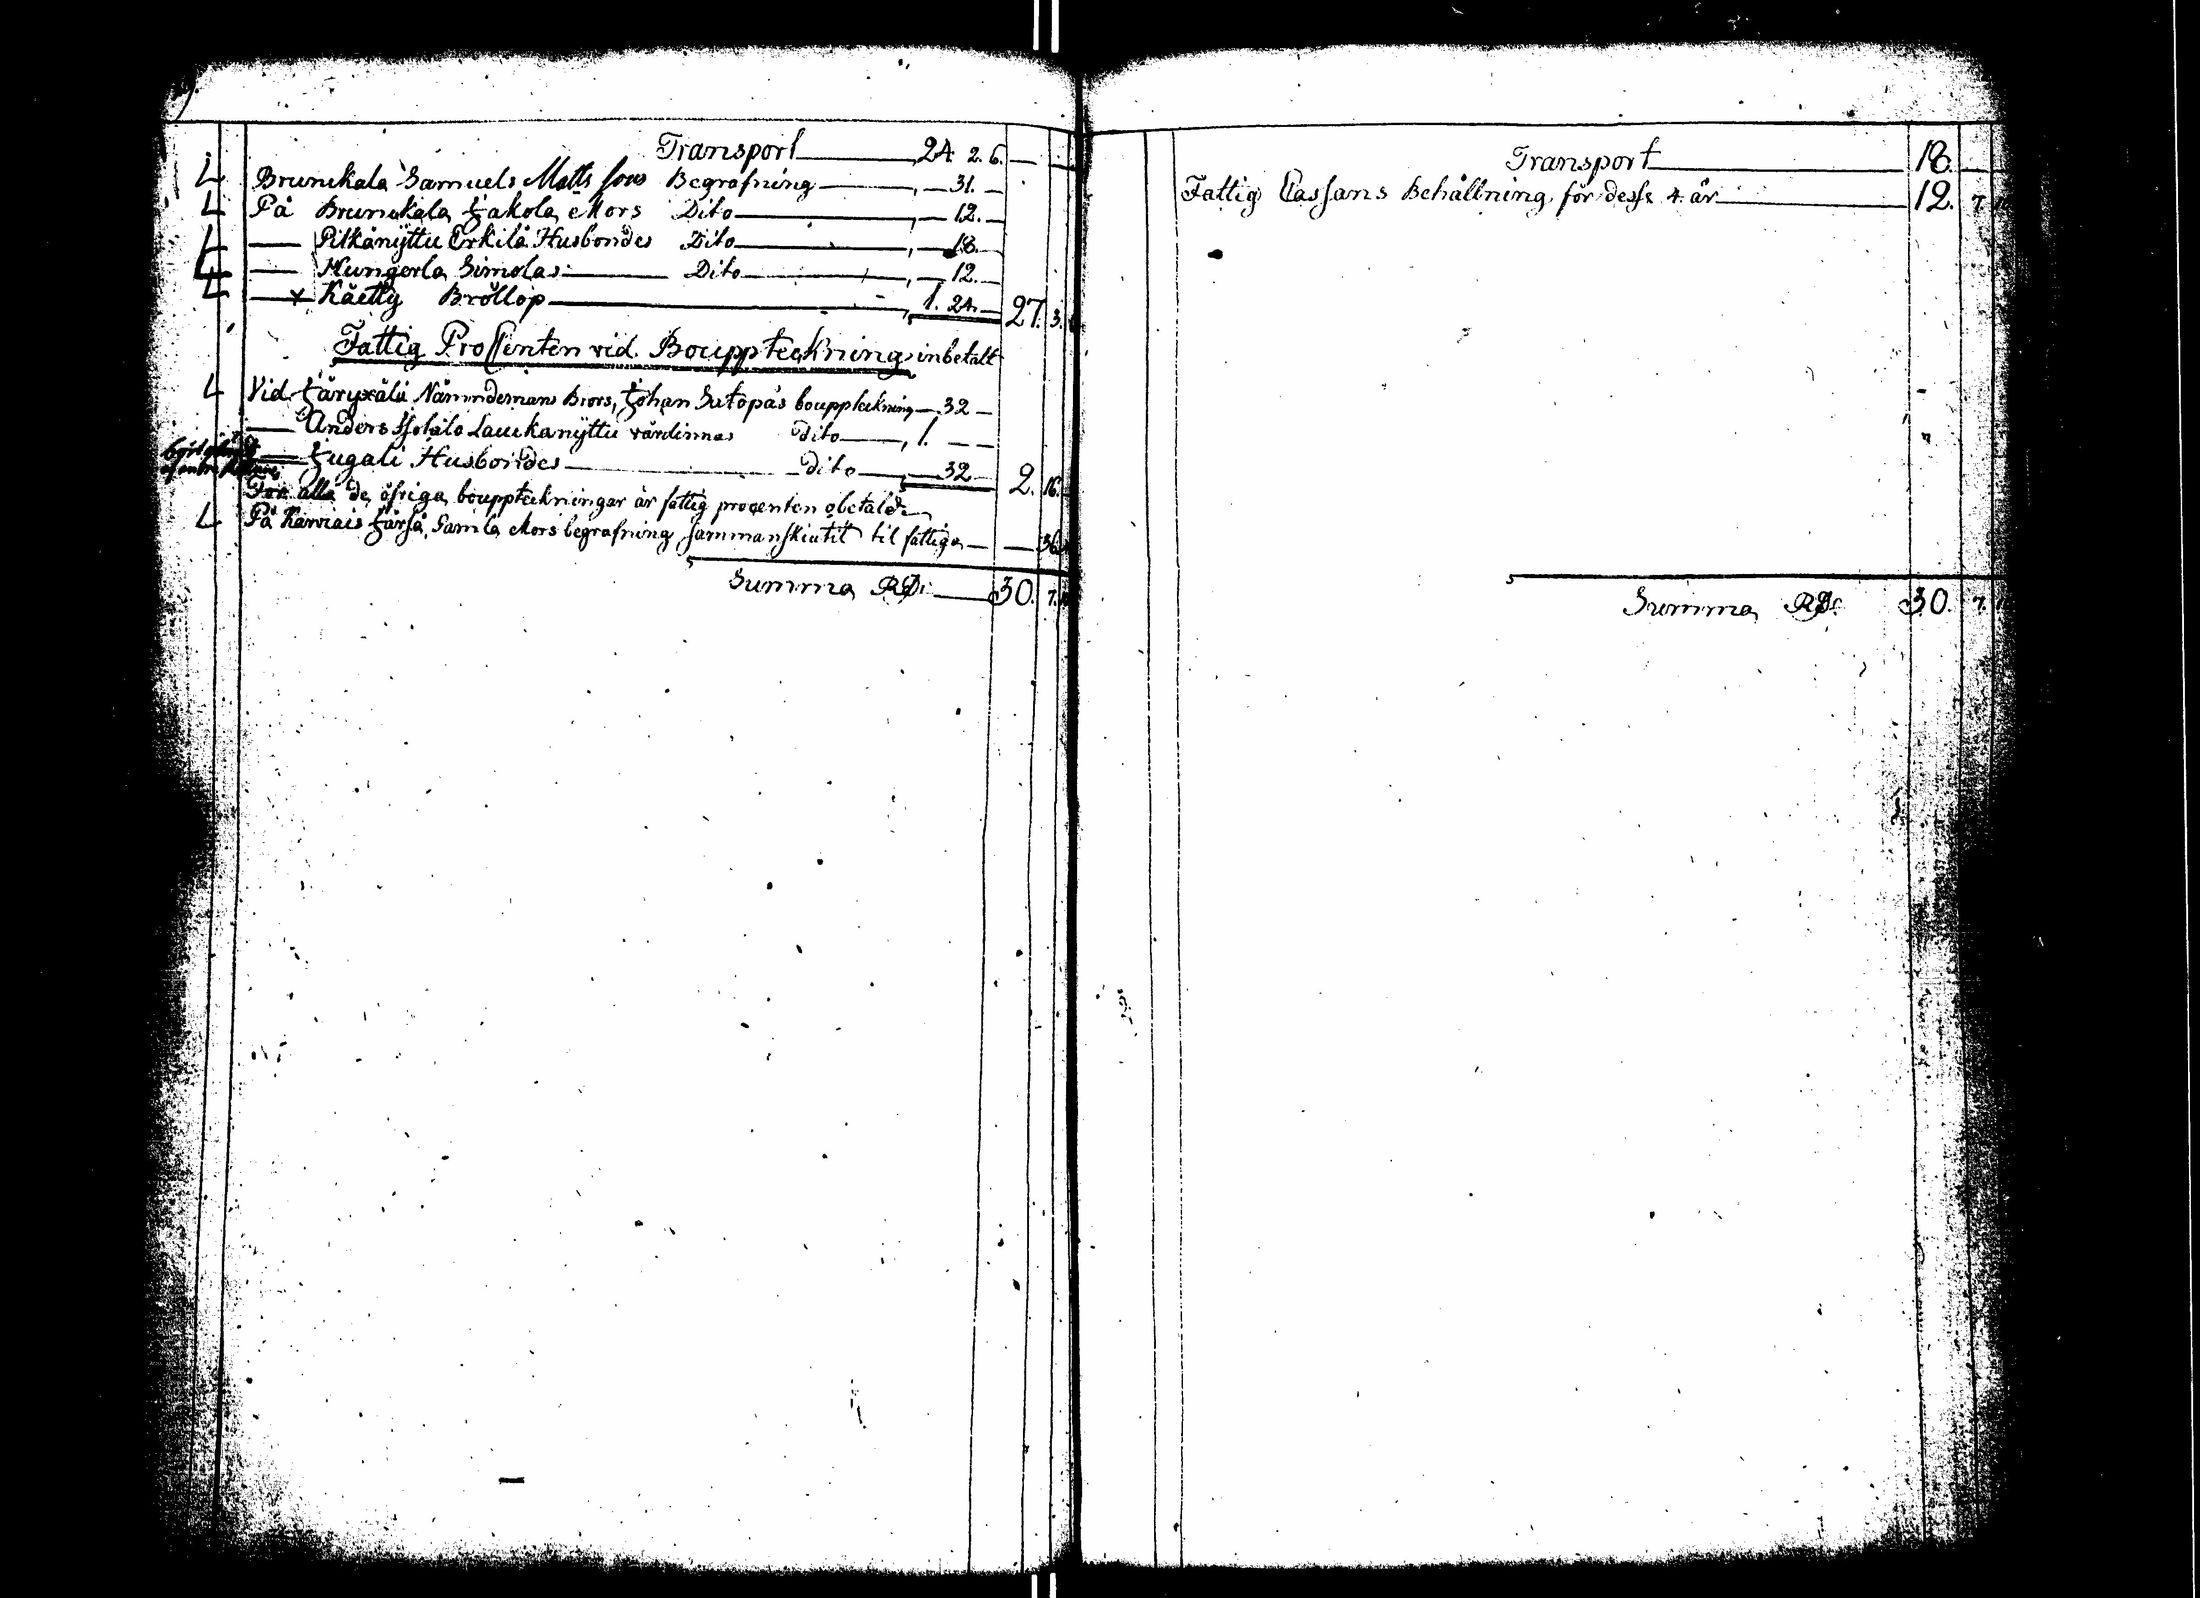 Transport 24 2. 6. —
L Brunikala Samuels Matts sons Begrafning — 31. —
L På Brunikala Jakola Mors Dito — 12. —
L — Pitkänyttu Erkilä Husbondes Dito — 18. —
L — Mungerla Simolas Dito — 12. —
L — Käetty Bröllop 1. 24. — 27. 3.
Fattig Procenten vid Bouppteckningar inbetalt
L Vid Nämndemans Brors, Johan Sutopås bouppteckning — 32 —
— Anders Laukanyttu värdinnas Dito 1. — —
— Jugali Husbondes Dito — 32 — 2. 16.
För alla de öfriga bouppteckningar är fattig procenten obetald
L På Karvais Gamla Mors begrafning sammanskiutit til fattiga — 36.
Summa RD: 30. 7.
Transport 18.
Fattig Cassans Behållning för desse 4 år 12. 7.
Summa RD: 30. 7.